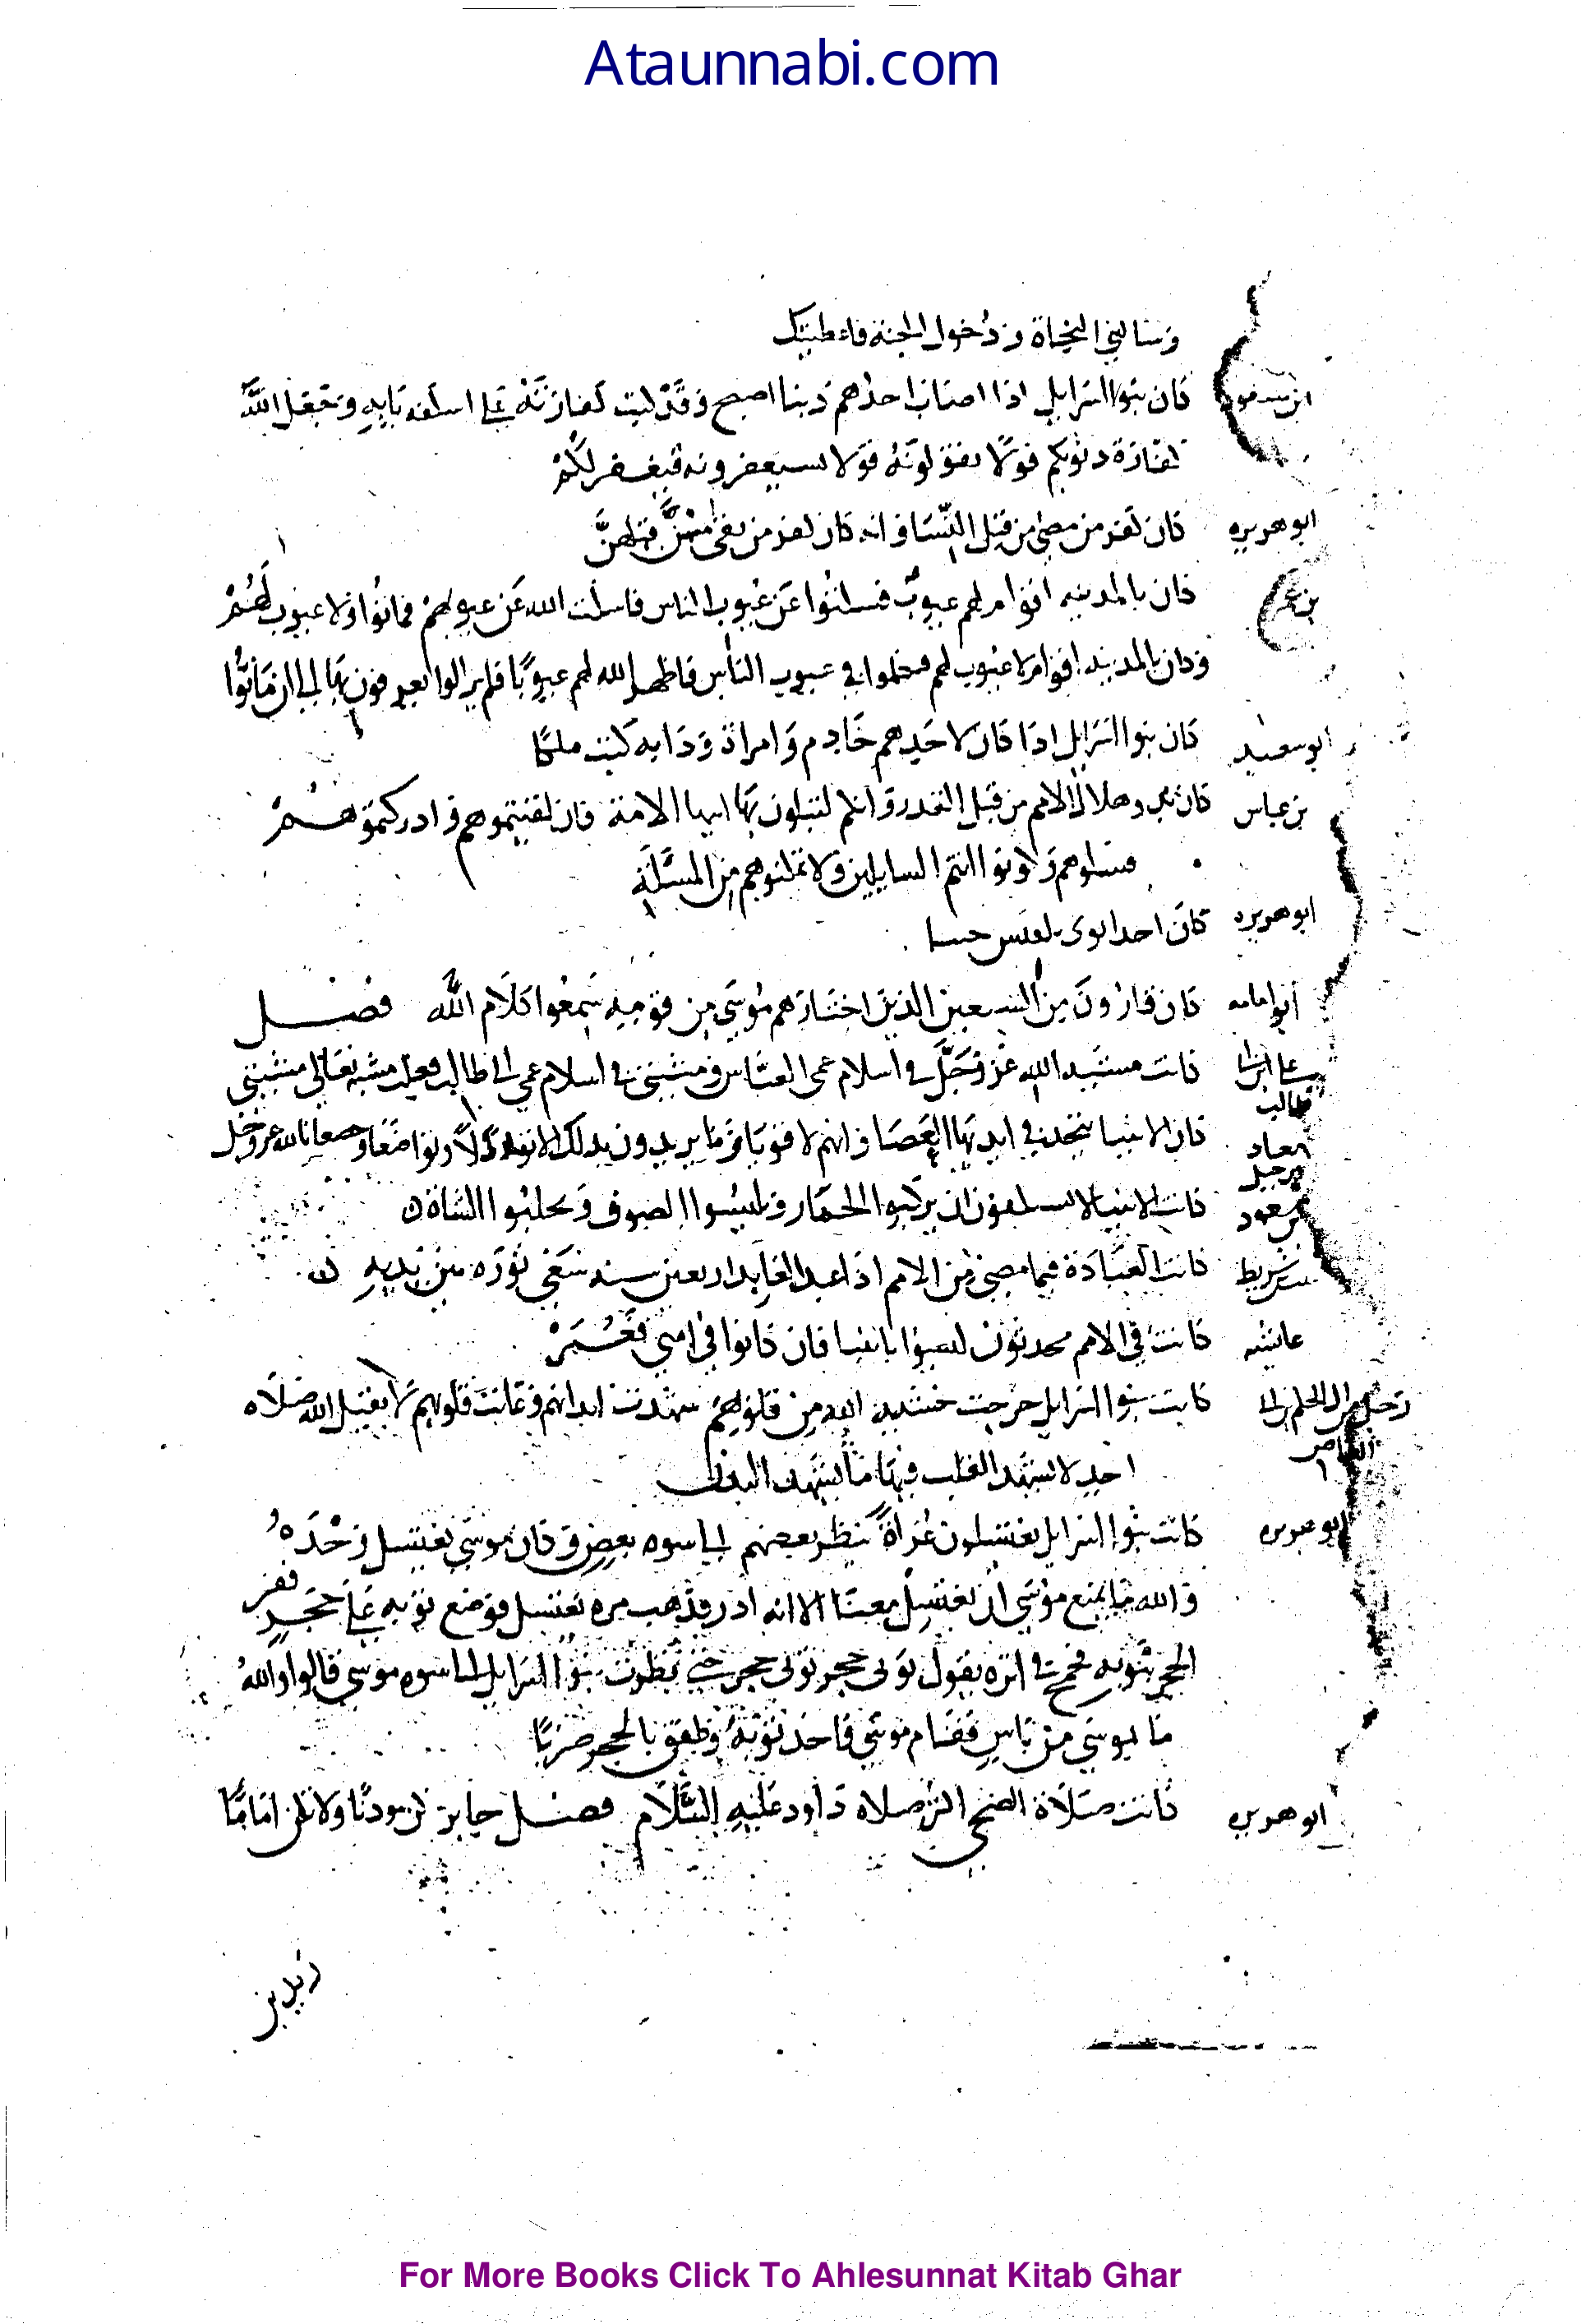 Ataunnabi.com
وسالني النجاة ودخول الجنة فاعطيتك
ابن مسعود كان بنوا اسرايل اذا اصاب احدهم ذنبا اصبح وقد كتبت كفارته على اسكفه بابه وتجعل الله
كفارة ذنوبكم قولا تقولونه تستغفرونه فيغفر لكم
ابو هريره كان كفر من مضى من قبل النساء وانه كان كفر من بقى منهن قبلهن
بن عمر كان بالمدينه اقوام لهم عيوب فسكتوا عن عيوب الناس فاسكت الله عن عيوبهم فماتوا ولا عيوب لهم
وكان بالمدينه اقوام لا عيوب لهم فتكلموا في عيوب الناس فاظهر الله لهم عيوبا فلم يزالوا يعرفون بها الى ان ماتوا
ابو سعيد كان بنوا اسرايل اذا كان لاحدهم خادم وامراة ودابه كتبت ملكا
بن عباس كان بدو هلاك الامم من قبل القدر وانكم لتبتلون بها ايها الامة فان لقيتموهم وادركتموهم
فسلوهم وكونوا انتم السايلين ولا تمكنوهم من المسئلة
ابو هريره كان احد ابوى بلقيس جنيا
ابو امامه كان قارون من السبعين الذين اختارهم موسى من قومه سمعوا كلام الله فصل
على ابن ابي طالب كانت مشية الله عز وجل في اسلام عمى العباس ومشيتي في اسلام عمي ابى طالب فغلبت مشيته تعالى مشيتي
معاد بن جبل كان الانبيا يتخذن في ايديها العصا وانهم لاقويا وما يريدون بذلك الا تواضعا لله عز وجل
بن مسعود كانت الانبيا لا يستنكفون ان يركبوا الحمار ويلبسوا الصوف ويحلبوا الشاة
بن شريط كانت العبادة فيما مضى من الامم اذا عبد العابد اربعين سنه سعى نوره بين يديه
عايشه كانت في الامم محدثون ليسوا بانبيا فان كانوا في امتي فعمر
كانت بنوا اسرايل خرجت خشية الله من قلوبهم شهدت ابدانهم وغابت قلوبهم لا يقبل الله صلاه
احد لا يشهد القلب فيها ما يشهد البدن
ابو هريره كانت بنوا اسرايل يغتسلون عراة ينظر بعضهم الى سوه بعض وكان موسى يغتسل وحده
والله ما يمنع موسى ان يغتسل معنا الا انه ادر فذهب مره يغتسل فوضع ثوبه على حجر ففر
الحجر بثوبه فجمح في اثره يقول ثوبى حجر ثوبى حجر حتى نظرت بنوا اسرايل الى سوه موسى قالوا والله
ما بموسى من باس فقام موسى فاخذ ثوبه وطفق بالحجر ضربا
ابو هريره كانت صلاة الضحى اكثر صلاه داود عليه السلام فصل جابر كن موذنا ولا تكن اماما
For More Books Click To Ahlesunnat Kitab Ghar